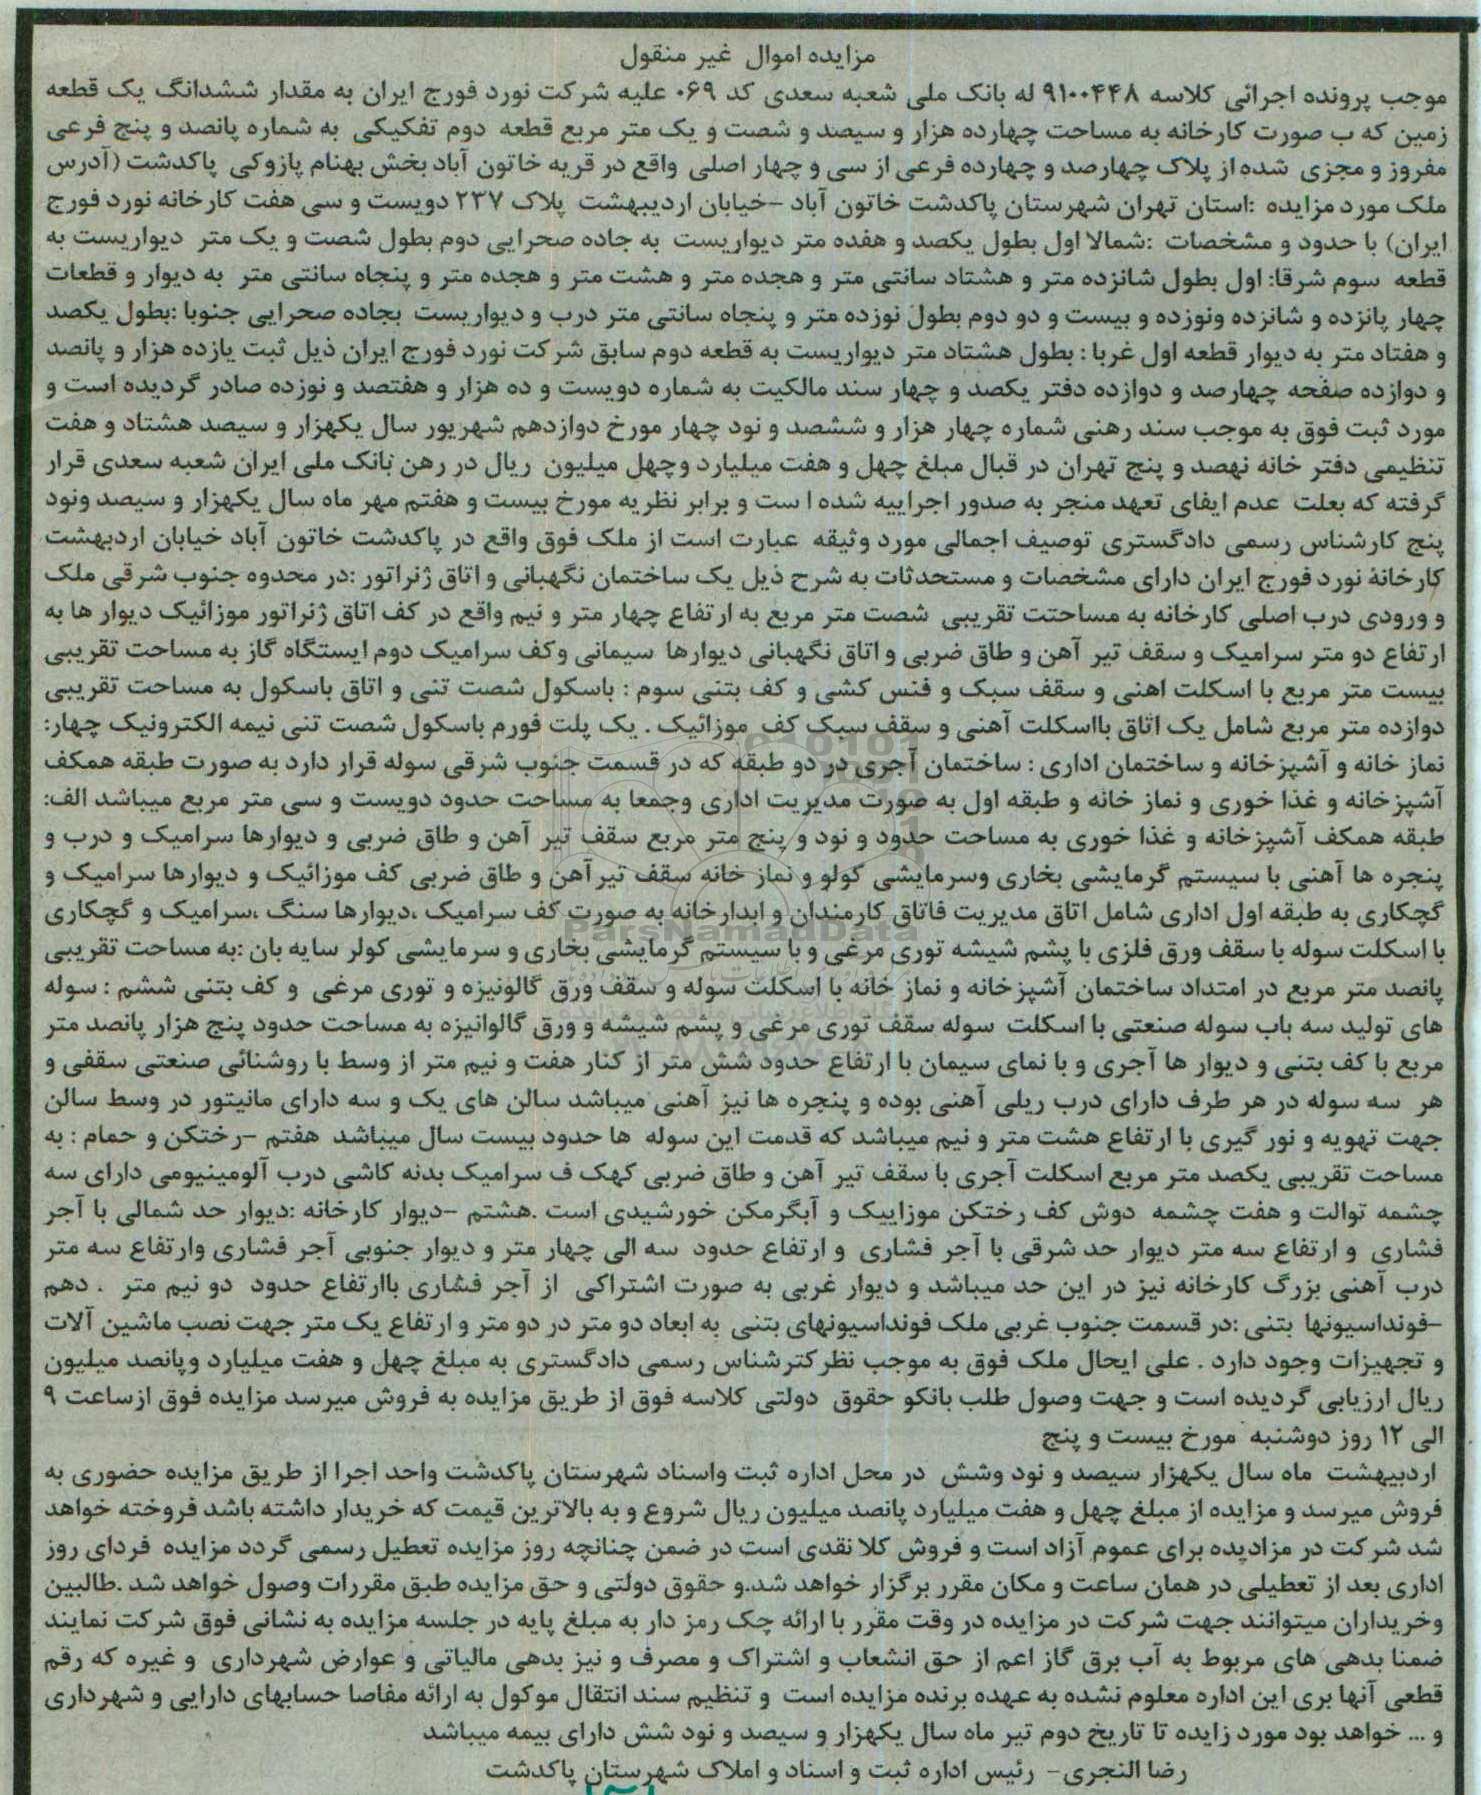 مزایده اموال غیر منقول
موجب پرونده اجرائی کلاسه ۹۱۰۰۴۴۸ له بانک ملی شعبه سعدی کد ۰۶۹ علیه شرکت نورد فورج ایران به مقدار ششدانگ یک قطعه
زمین که ب صورت کارخانه به مساحت چهارده هزار و سیصد و شصت و یک متر مربع قطعه دوم تفکیکی به شماره پانصد و پنج فرعی
مفروز و مجزی شده از پلاک چهارصد و چهارده فرعی از سی و چهار اصلی واقع در قریه خاتون آباد بخش بهنام پازوکی پاکدشت (آدرس
ملک مورد مزایده :استان تهران شهرستان پاکدشت خاتون آباد –خیابان اردیبهشت پلاک ۲۳۷ دویست و سی هفت کارخانه نورد فورج
ایران) با حدود و مشخصات :شمالا اول بطول یکصد و هفده متر دیواریست به جاده صحرایی دوم بطول شصت و یک متر دیواریست به
قطعه سوم شرقا: اول بطول شانزده متر و هشتاد سانتی متر و هجده متر و هشت متر و هجده متر و پنجاه سانتی متر به دیوار و قطعات
چهار پانزده و شانزده ونوزده و بیست و دو دوم بطول نوزده متر و پنجاه سانتی متر درب و دیواریست بجاده صحرایی جنوبا :بطول یکصد
و هفتاد متر به دیوار قطعه اول غربا : بطول هشتاد متر دیواریست به قطعه دوم سابق شرکت نورد فورج ایران ذیل ثبت یازده هزار و پانصد
و دوازده صفحه چهارصد و دوازده دفتر یکصد و چهار سند مالکیت به شماره دویست و ده هزار و هفتصد و نوزده صادر گردیده است و
مورد ثبت فوق به موجب سند رهنی شماره چهار هزار و ششصد و نود چهار مورخ دوازدهم شهریور سال یکهزار و سیصد هشتاد و هفت
تنظیمی دفتر خانه نهصد و پنج تهران در قبال مبلغ چهل و هفت میلیارد وچهل میلیون ریال در رهن بانک ملی ایران شعبه سعدی قرار
گرفته که بعلت عدم ایفای تعهد منجر به صدور اجراییه شده ا ست و برابر نظریه مورخ بیست و هفتم مهر ماه سال یکهزار و سیصد ونود
پنج کارشناس رسمی دادگستری توصیف اجمالی مورد وثیقه عبارت است از ملک فوق واقع در پاکدشت خاتون آباد خیابان اردبهشت
کارخانه نورد فورج ایران دارای مشخصات و مستحدثات به شرح ذیل یک ساختمان نگهبانی و اتاق ژنراتور :در محدوه جنوب شرقی ملک
و ورودی درب اصلی کارخانه به مساحتت تقریبی شصت متر مربع به ارتفاع چهار متر و نیم واقع در کف اتاق ژنراتور موزائیک دیوار ها به
ارتفاع دو متر سرامیک و سقف تیر آهن و طاق ضربی و اتاق نگهبانی دیوارها سیمانی وکف سرامیک دوم ایستگاه گاز به مساحت تقریبی
بیست متر مربع با اسکلت اهنی و سقف سبک و فنس کشی و کف بتنی سوم : باسکول شصت تنی و اتاق باسکول به مساحت تقریبی
دوازده متر مربع شامل یک اتاق بااسکلت آهنی و سقف سبک کف موزائیک . یک پلت فورم باسکول شصت تنی نیمه الکترونیک چهار:
نماز خانه و آشپزخانه و ساختمان اداری : ساختمان آجری در دو طبقه که در قسمت جنوب شرقی سوله قرار دارد به صورت طبقه همکف
آشپزخانه و غذا خوری و نماز خانه و طبقه اول به صورت مدیریت اداری وجمعا به مساحت حدود دویست و سی متر مربع میباشد الف:
طبقه همکف آشپزخانه و غذا خوری به مساحت حدود و نود و پنج متر مربع سقف تیر آهن و طاق ضربی و دیوارها سرامیک و درب و
پنجره ها آهنی با سیستم گرمایشی بخاری وسرمایشی کولو و نماز خانه سقف تیرآهن و طاق ضربی کف موزائیک و دیوارها سرامیک و
گچکاری به طبقه اول اداری شامل اتاق مدیریت فاتاق کارمندان و ابدارخانه به صورت کف سرامیک ،دیوارها سنگ ،سرامیک و گچکاری
با اسکلت سوله با سقف ورق فلزی با پشم شیشه توری مرغی و با سیستم گرمایشی بخاری و سرمایشی کولر سایه بان :به مساحت تقریبی
پانصد متر مربع در امتداد ساختمان آشپزخانه و نماز خانه با اسکلت سوله و سقف ورق گالونیزه و توری مرغی و کف بتنی ششم : سوله
های تولید سه باب سوله صنعتی با اسکلت سوله سقف توری مرغی و پشم شیشه و ورق گالوانیزه به مساحت حدود پنج هزار پانصد متر
مربع با کف بتنی و دیوار ها آجری و با نمای سیمان با ارتفاع حدود شش متر از کنار هفت و نیم متر از وسط با روشنائی صنعتی سقفی و
هر سه سوله در هر طرف دارای درب ریلی آهنی بوده و پنجره ها نیز آهنی میباشد سالن های یک و سه دارای مانیتور در وسط سالن
جهت تهویه و نور گیری با ارتفاع هشت متر و نیم میباشد که قدمت این سوله ها حدود بیست سال میباشد هفتم –رختکن و حمام : به
مساحت تقریبی یکصد متر مربع اسکلت آجری با سقف تیر آهن و طاق ضربی کهک ف سرامیک بدنه کاشی درب آلومینیومی دارای سه
چشمه توالت و هفت چشمه دوش کف رختکن موزاییک و آبگرمکن خورشیدی است .هشتم –دیوار کارخانه :دیوار حد شمالی با آجر
فشاری و ارتفاع سه متر دیوار حد شرقی با آجر فشاری و ارتفاع حدود سه الی چهار متر و دیوار جنوبی آجر فشاری وارتفاع سه متر
درب آهنی بزرگ کارخانه نیز در این حد میباشد و دیوار غربی به صورت اشتراکی از آجر فشاری باارتفاع حدود دو نیم متر . دهم
–فونداسیونها بتنی :در قسمت جنوب غربی ملک فونداسیونهای بتنی به ابعاد دو متر در دو متر و ارتفاع یک متر جهت نصب ماشین آلات
و تجهیزات وجود دارد . علی ایحال ملک فوق به موجب نظرکترشناس رسمی دادگستری به مبلغ چهل و هفت میلیارد وپانصد میلیون
ریال ارزیابی گردیده است و جهت وصول طلب بانکو حقوق دولتی کلاسه فوق از طریق مزایده به فروش میرسد مزایده فوق ازساعت ۹
الی ۱۲ روز دوشنبه مورخ بیست و پنج
اردبیهشت ماه سال یکهزار سیصد و نود وشش در محل اداره ثبت واسناد شهرستان پاکدشت واحد اجرا از طریق مزایده حضوری به
فروش میرسد و مزایده از مبلغ چهل و هفت میلیارد پانصد میلیون ریال شروع و به بالاترین قیمت که خریدار داشته باشد فروخته خواهد
شد شرکت در مزادیده برای عموم آزاد است و فروش کلا نقدی است در ضمن چنانچه روز مزایده تعطیل رسمی گردد مزایده فردای روز
اداری بعد از تعطیلی در همان ساعت و مکان مقرر برگزار خواهد شد.و حقوق دولتی و حق مزایده طبق مقررات وصول خواهد شد .طالبین
وخریداران میتوانند جهت شرکت در مزایده در وقت مقرر با ارائه چک رمز دار به مبلغ پایه در جلسه مزایده به نشانی فوق شرکت نمایند
ضمنا بدهی های مربوط به آب برق گاز اعم از حق انشعاب و اشتراک و مصرف و نیز بدهی مالیاتی و عوارض شهرداری و غیره که رقم
قطعی آنها بری این اداره معلوم نشده به عهده برنده مزایده است و تنظیم سند انتقال موکول به ارائه مفاصا حسابهای دارایی و شهرداری
و ... خواهد بود مورد زایده تا تاریخ دوم تیر ماه سال یکهزار و سیصد و نود شش دارای بیمه میباشد
رضا النجری- رئیس اداره ثبت و اسناد و املاک شهرستان پاکدشت
ParsNamadData